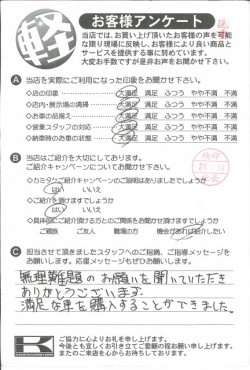 軽
お客様アンケート
当店では、お買い上げ頂いたお客様の声を可能
な限り現場に反映し、お客様により良い商品と
サービスを提供する事に努めています。
大変お手数ですが是非お声をお聞かせ下さい。
A 当店を実際にご利用になった印象をお聞かせ下さい。
◇店の印象 大満足 満足 ふつう やや不満 不満
◇店内・展示場の清掃 大満足 満足 ふつう やや不満 不満
◇お車の品揃え 大満足 満足 ふつう やや不満 不満
◇営業スタッフの対応 大満足 満足 ふつう やや不満 不満
◇納車時のお車の状態 大満足 満足 ふつう やや不満 不満
B 当店はご紹介を大切にしております。
ご紹介キャンペーンについてお聞かせ下さい。
◇カミタケご紹介キャンペーンのご説明はありましたでしょうか
はい いいえ
◇ご紹介を頂けますでしょうか
はい いいえ
◇具体的にご紹介頂ける方とのご関係をお聞かせ頂けますでしょうか
ご親戚 ご友人 職場の方 機会があれば紹介したい
C 担当させて頂きましたスタッフへのご指摘、ご指導メッセージを
お願いします。応援メッセージもぜひお願いします。
無理難題のお願いを聞いていただき
ありがとうございます。
満足な車を購入することができました。
K
ご協力に心よりお礼を申し上げます。
今後とも宜しくお引き立てご愛顧の程お願い申し上げます。
またのご来店を心からお待ちしております。